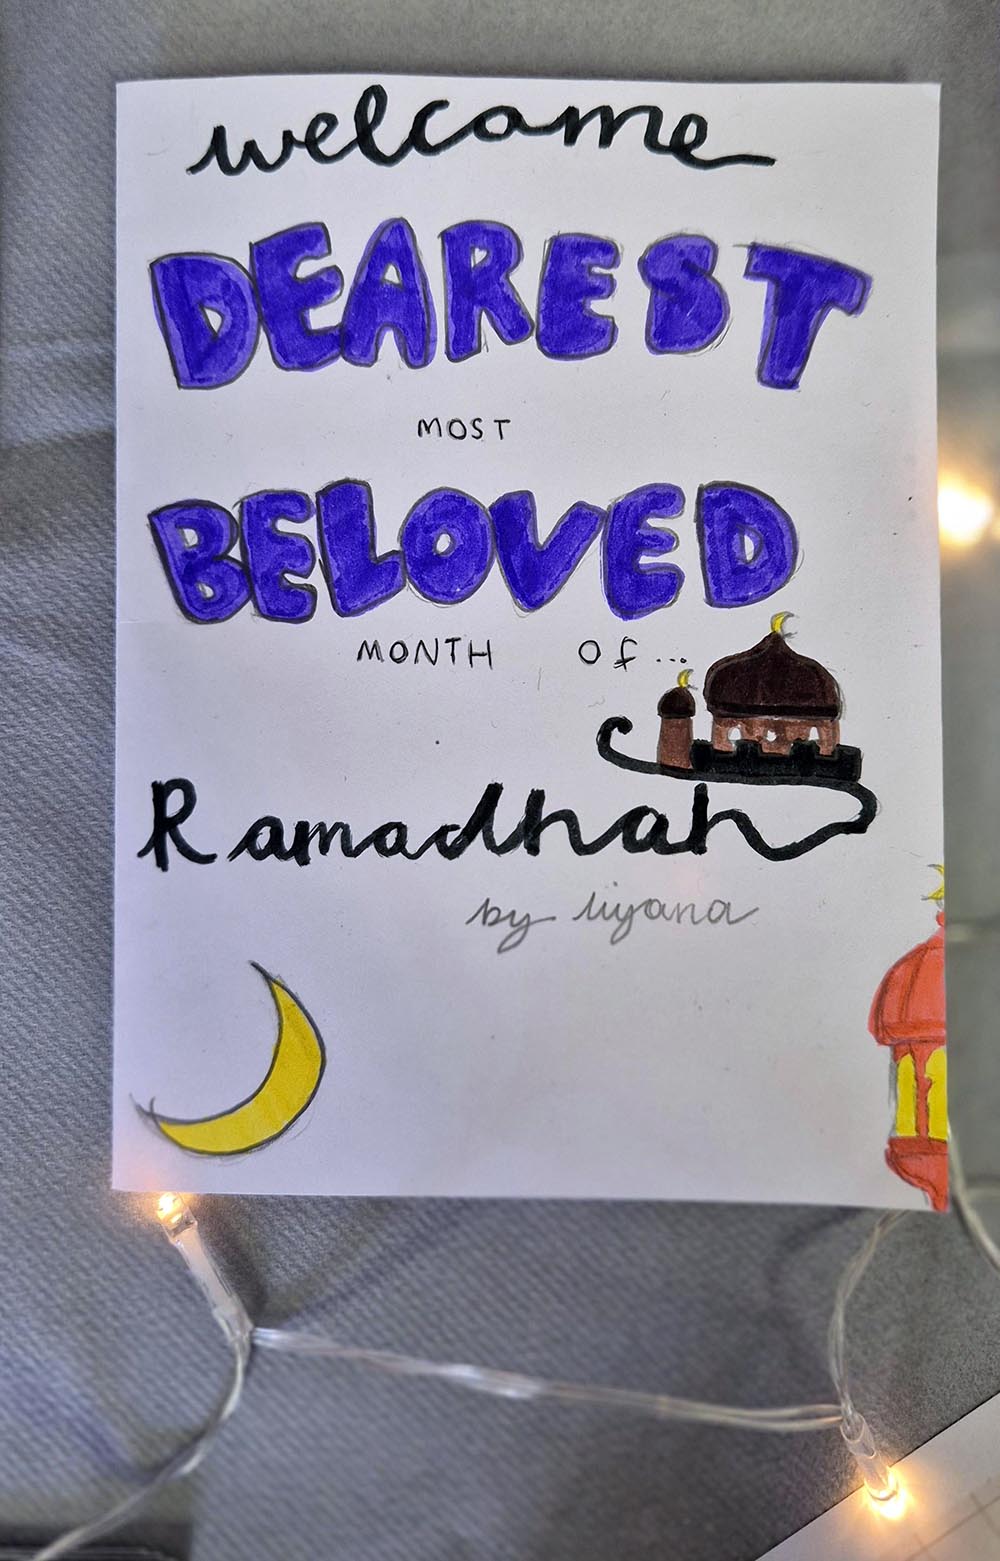 welcome
DEAREST
MOST
BELOVED
MONTH OF...
Ramadhan
by liyana